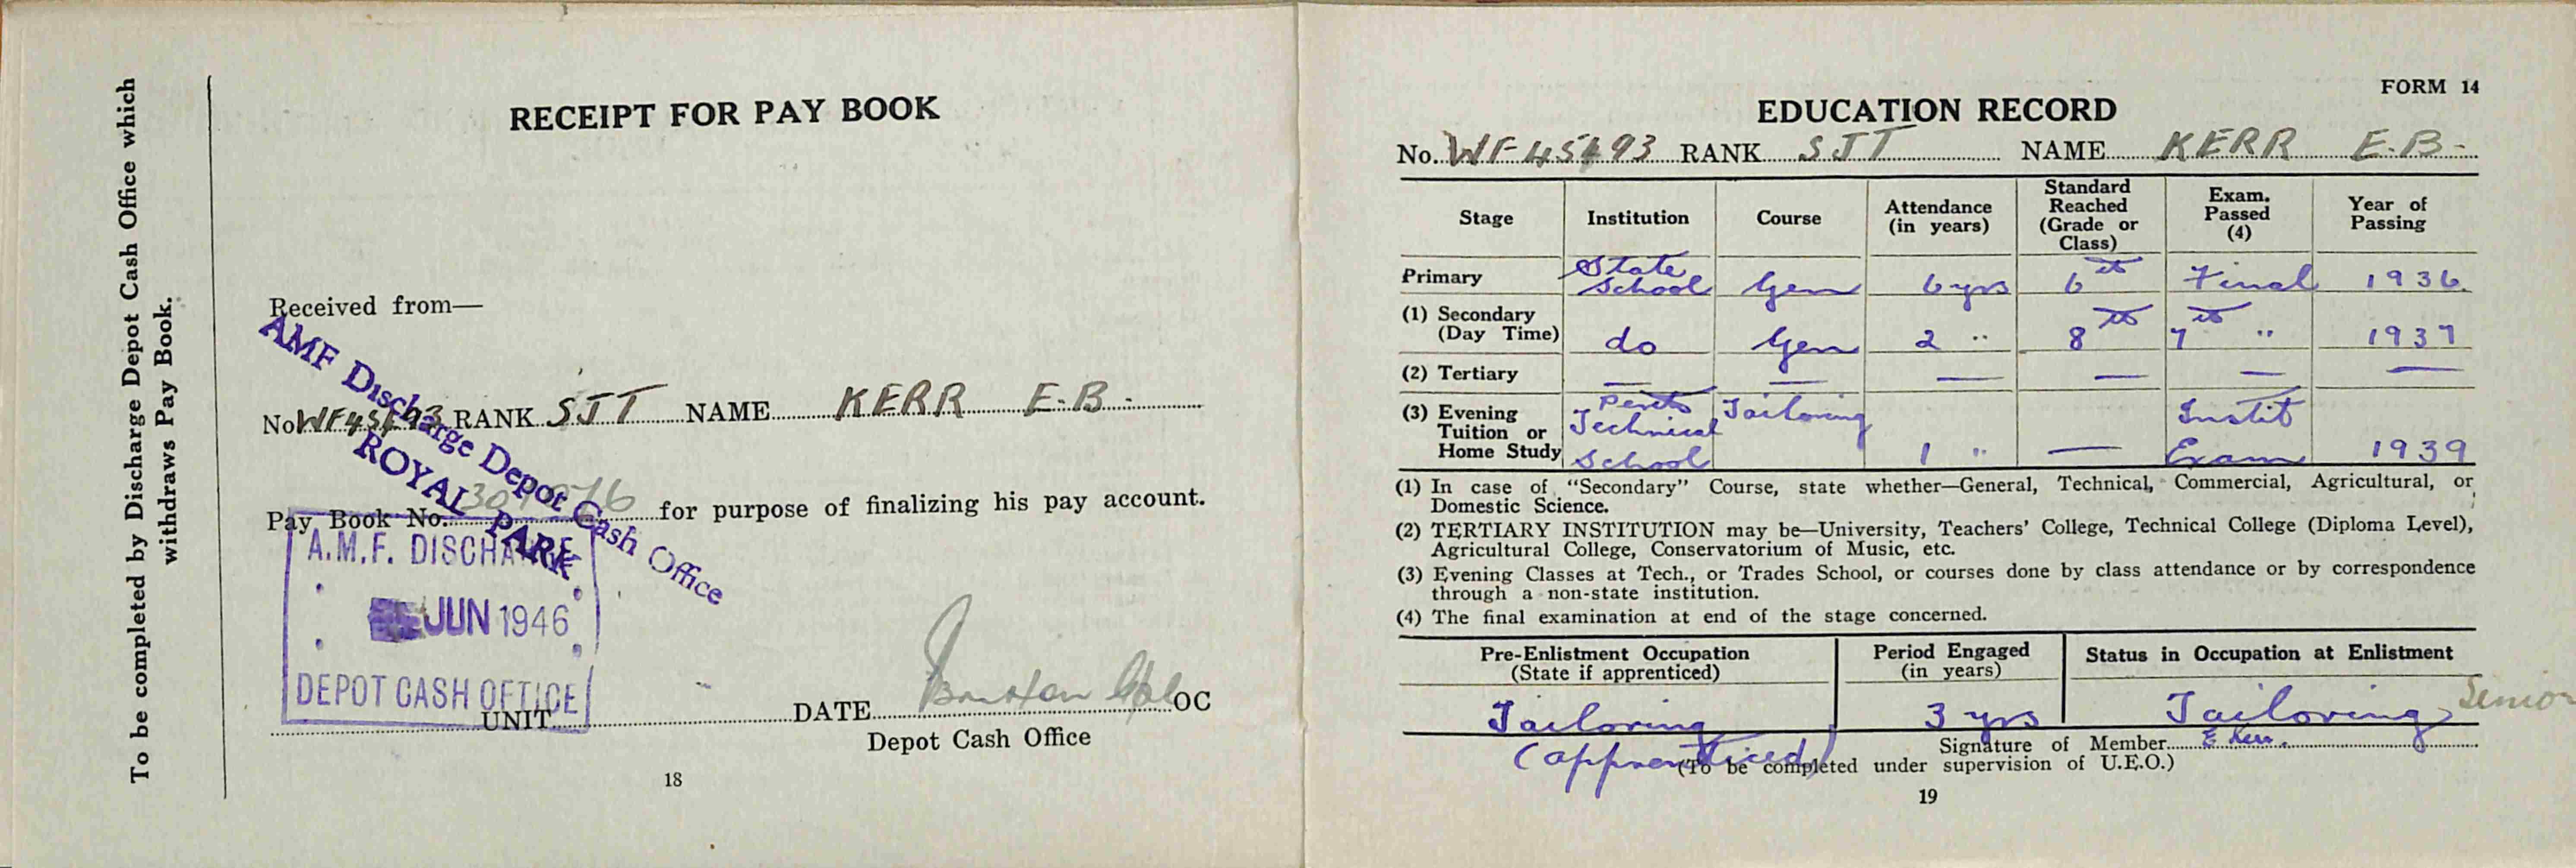 To be completed by Discharge Depot Cash Office which
withdraws Pay Book.
RECEIPT FOR PAY BOOK
Received from—
AMF Discharge Depot Cash Office
ROYAL PARK
No. RANK SJT NAME KERR E.B.
Pay Book No. for purpose of finalizing his pay account.
A.M.F. DISCHARGE
JUN 1946
DEPOT CASH OFFICE
UNIT DATE OC
Depot Cash Office
18
FORM 14
EDUCATION RECORD
No. RANK SJT NAME KERR E.B.
Stage Institution Course Attendance (in years) Standard Reached (Grade or Class) Exam. Passed (4) Year of Passing
Primary State School Gen 6 yrs 6th Final 1936
(1) Secondary (Day Time) do Gen 2 " 8th 7th " 1937
(2) Tertiary — — — — — —
(3) Evening Tuition or Home Study Perth Technical School Tailoring 1 " — Instit Exam 1939
(1) In case of "Secondary" Course, state whether—General, Technical, Commercial, Agricultural, or
Domestic Science.
(2) TERTIARY INSTITUTION may be—University, Teachers' College, Technical College (Diploma Level),
Agricultural College, Conservatorium of Music, etc.
(3) Evening Classes at Tech., or Trades School, or courses done by class attendance or by correspondence
through a non-state institution.
(4) The final examination at end of the stage concerned.
Pre-Enlistment Occupation (State if apprenticed) Period Engaged (in years) Status in Occupation at Enlistment
Tailoring 3 yrs Tailoring Senior
(apprenticed)
Signature of Member E Kerr.
(To be completed under supervision of U.E.O.)
19